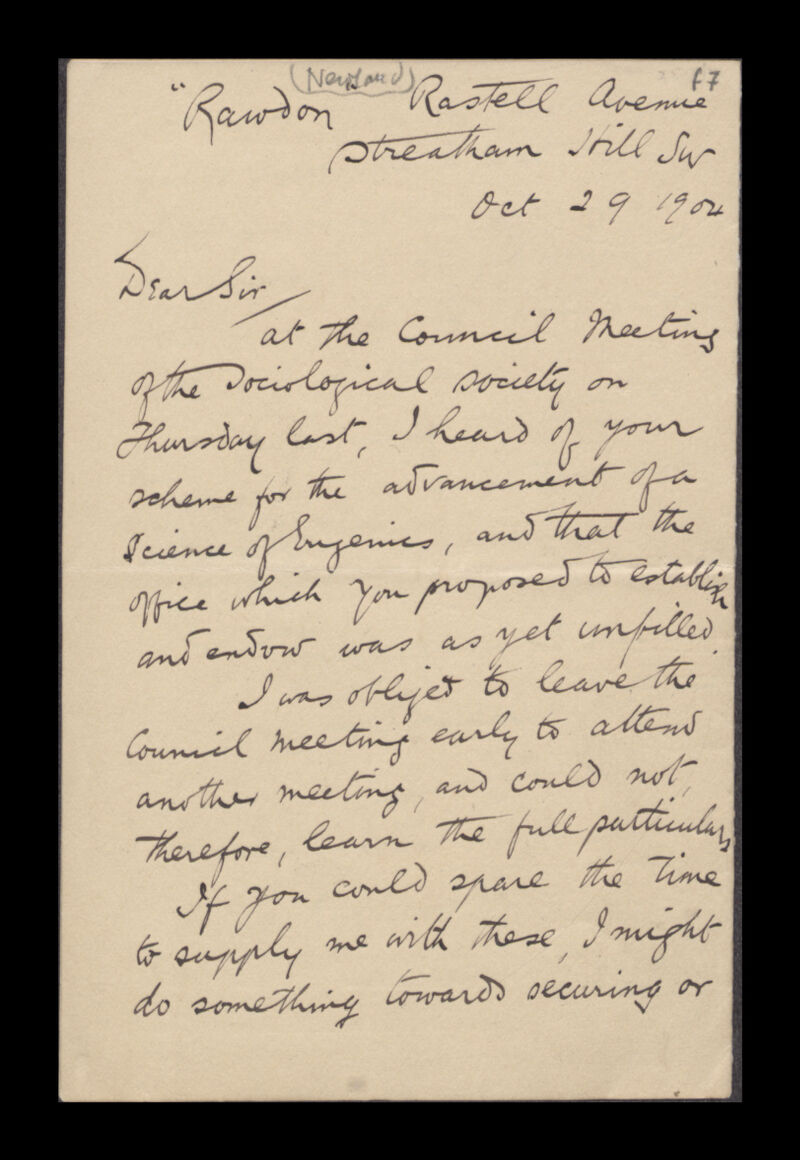 (Newland) f7
"Rawdon" Rastell Avenue
Streatham Hill SW
Oct 29 1904
Dear Sir
at the Council Meeting
of the Sociological society on
Thursday last, I heard of your
scheme for the advancement of a
Science of Eugenics, and that the
office which you proposed to establish
and endow was as yet unfilled.
I was obliged to leave the
Council meeting early to attend
another meeting, and could not,
therefore, learn the full particulars
If you could spare the time
to supply me with these, I might
do something towards securing or